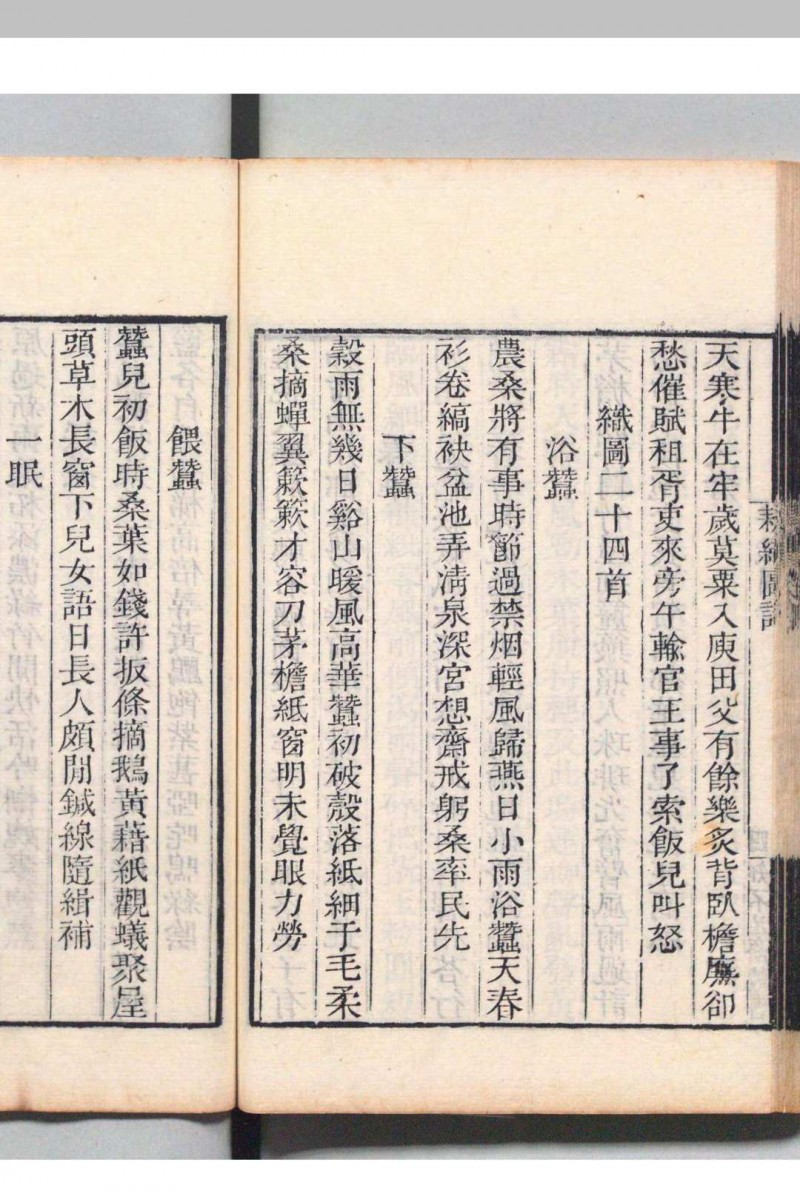 耕織圖詩
天寒牛在牢歲莫粟入庾田父有餘樂炙背臥檐廡卻
愁催賦租胥吏來旁午輸官王事了索飯兒叫怒
織圖二十四首
浴蠶
農桑將有事時節過禁烟輕風歸燕日小雨浴蠶天春
衫卷縞袂盆池弄淸泉深宮想齋戒躬桑率民先
下蠶
穀雨無幾日谿山暖風高華蠶初破殼落紙細于毛柔
桑摘蟬翼簌簌才容刀茅檐紙窗明未覺眼力勞
餵蠶
蠶兒初飯時桑葉如錢許扳條摘鵝黃藉紙觀蟻聚屋
頭草木長窗下兒女語日長人頗閒鍼線隨緝補
一眠